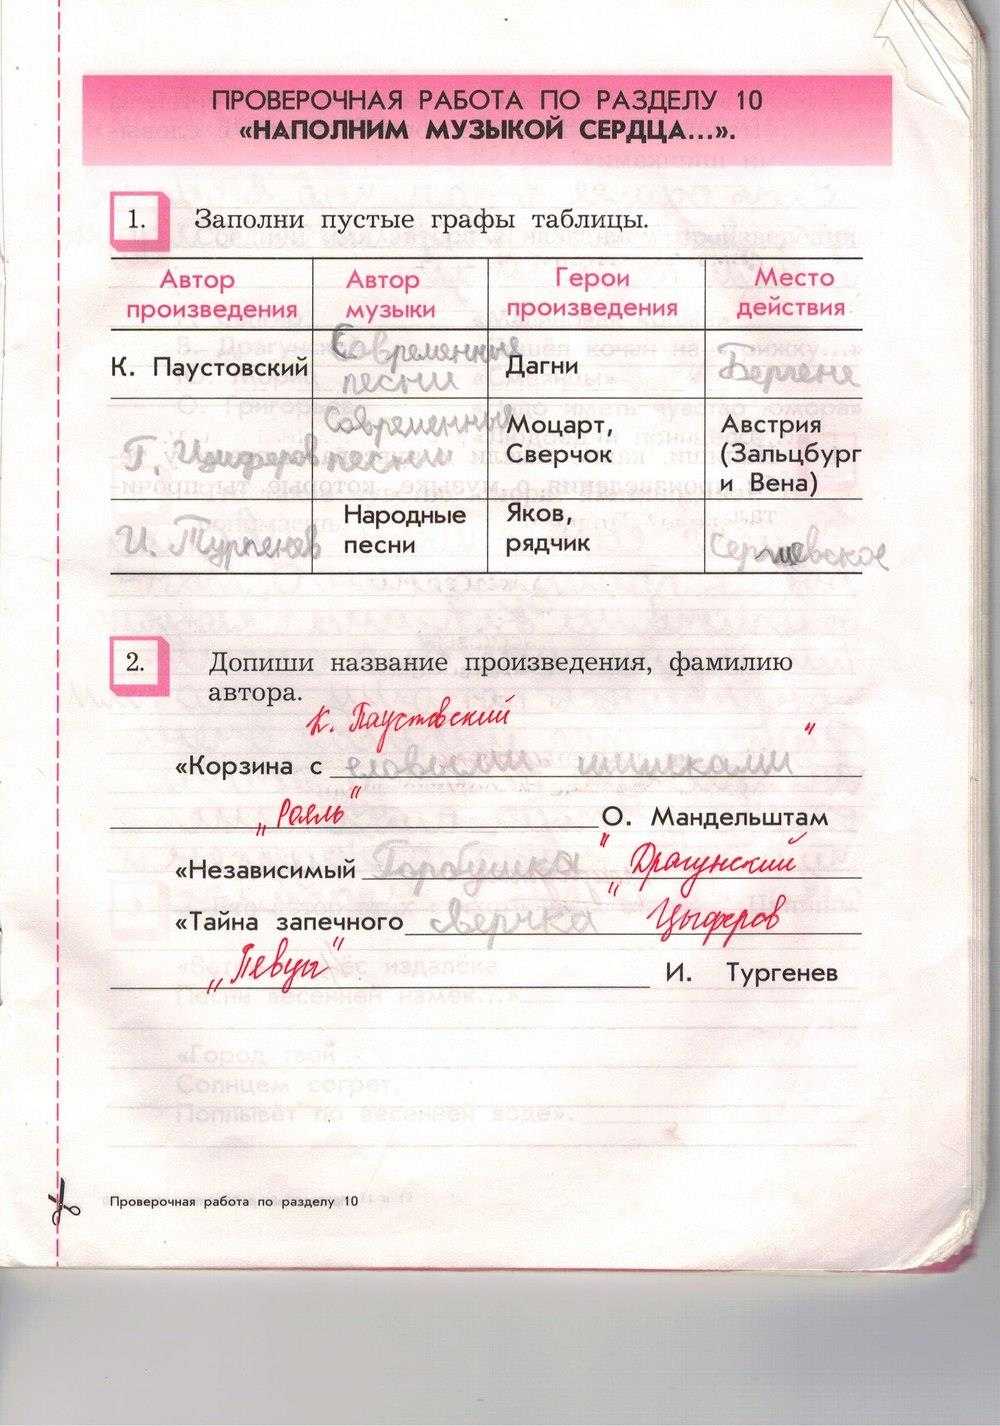 ПРОВЕРОЧНАЯ РАБОТА ПО РАЗДЕЛУ 10
«НАПОЛНИМ МУЗЫКОЙ СЕРДЦА...».
1. Заполни пустые графы таблицы.
Автор произведения Автор музыки Герои произведения Место действия
К. Паустовский Современные песни Дагни Бергене
Г. Цыферов Современные песни Моцарт, Сверчок Австрия (Зальцбург и Вена)
И. Тургенев Народные песни Яков, рядчик Сергиевское
2. Допиши название произведения, фамилию
автора.
К. Паустовский
«Корзина с еловыми шишками"
„Рояль" О. Мандельштам
«Независимый Горбушка" „Драгунский
«Тайна запечного сверчка Цыферов
„Певцы" И. Тургенев
«Город твой
Солнцем согрет,
Поплывёт по весенней воде».
Проверочная работа по разделу 10